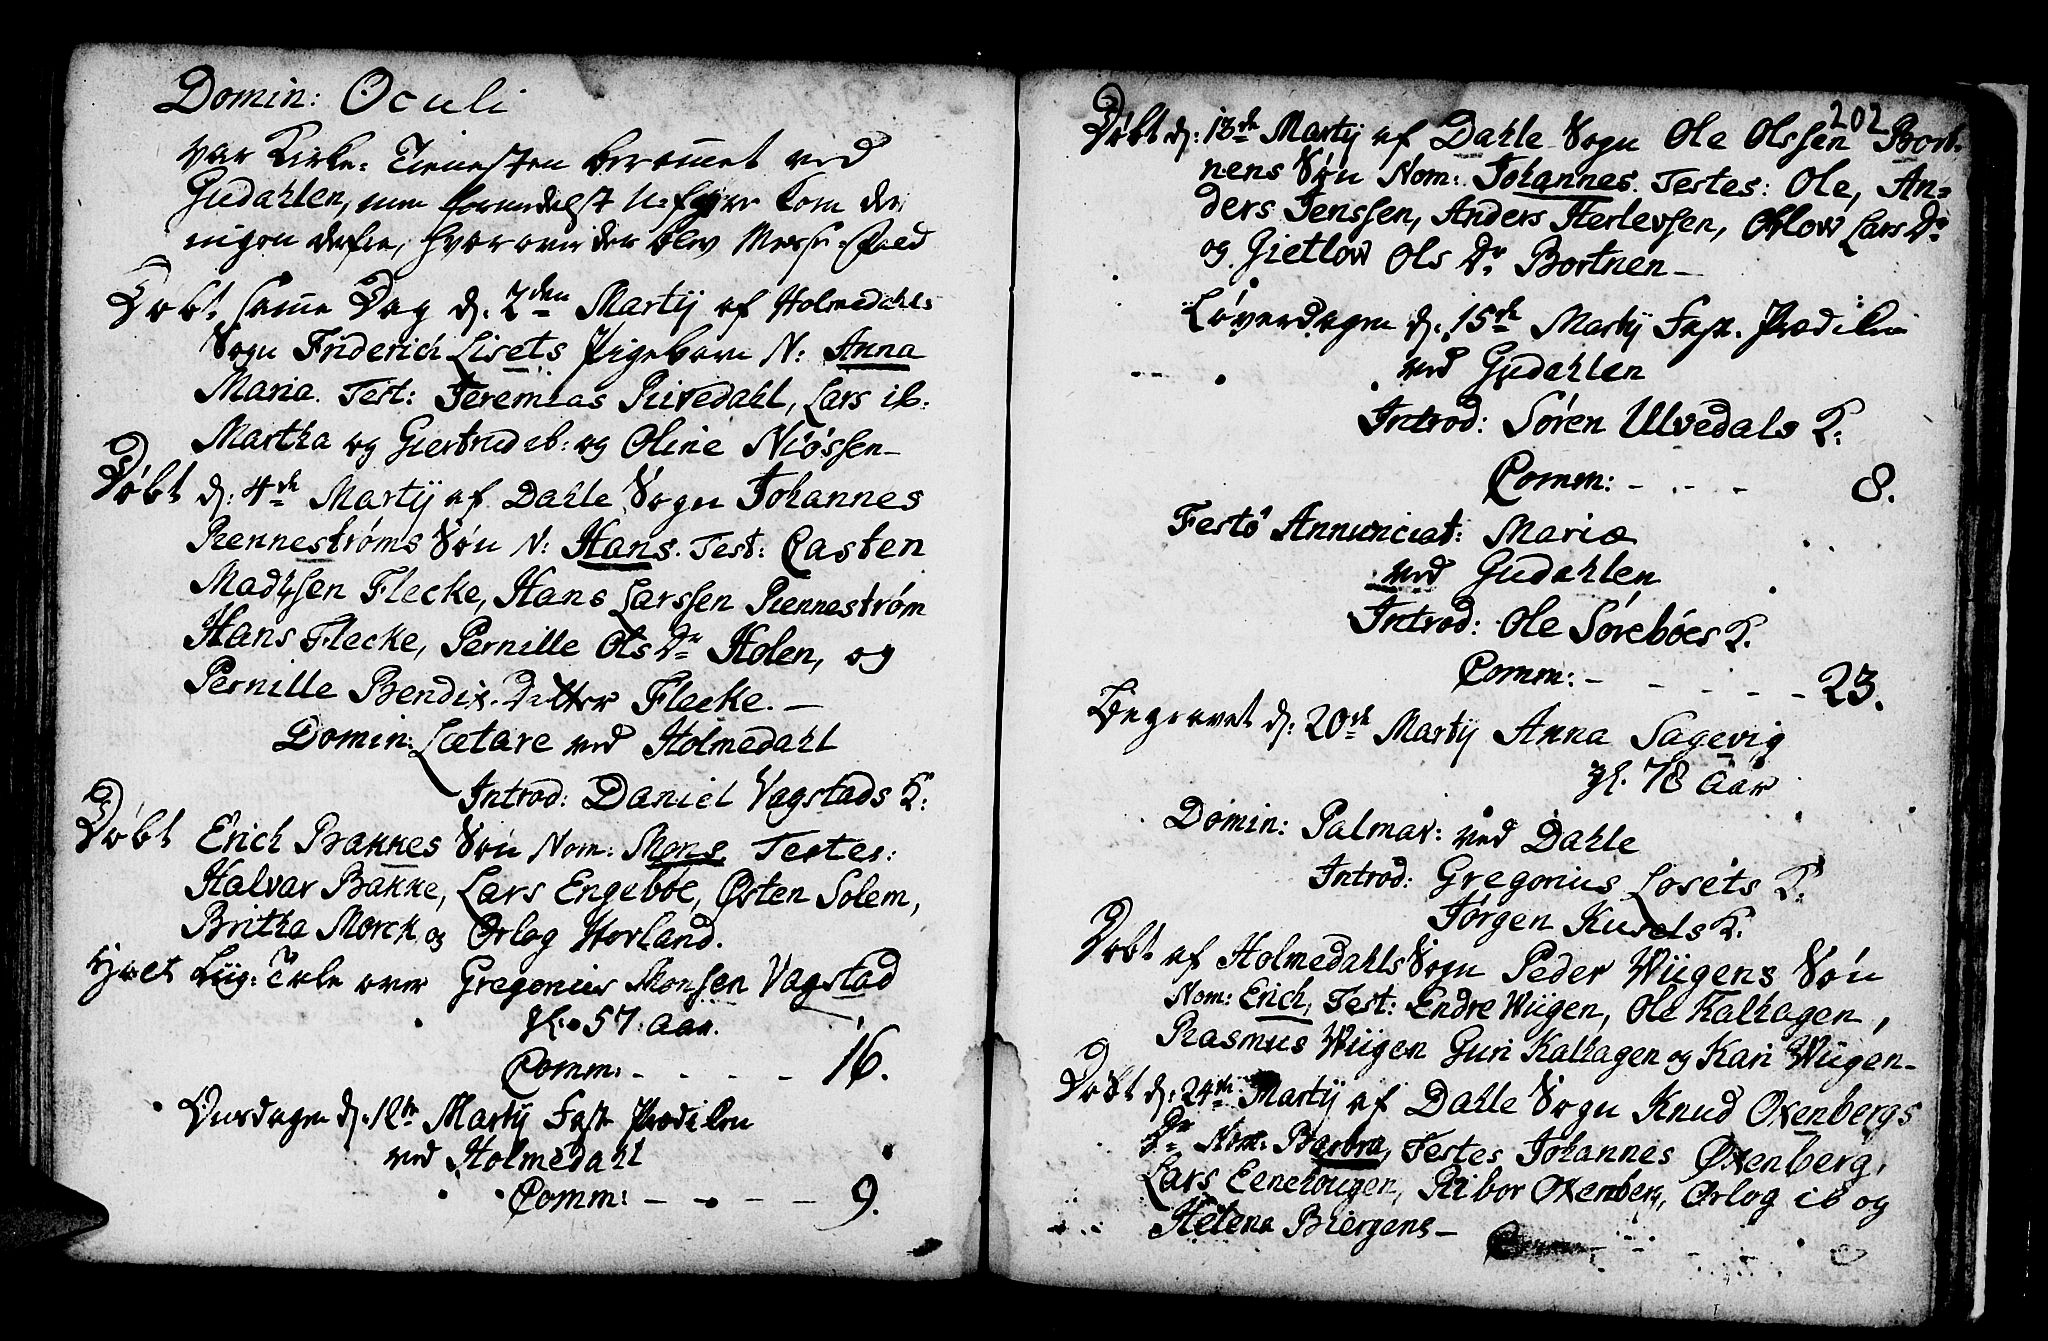 Domin: Oculi
var Kirke-Tienesten berammet ved
Gudahlen, men formedelst Uføyre kom der
ingen Præst, hvorover der blev Messe-Fald
Døbt samme Dag d: 2den Martij af Holmedahls
Sogn Friderich Lisets Pigebarn N: Anna
Maria. Test: Jeremias Rivedahl, Lars ib:
Martha og Giertrud ib: og Oline Niøssen
Døbt d: 4de Martij af Dahle Sogn Johannes
Rennestrøms Søn N: Hans. Test: Casten
Madhsen Flecke, Hans Larssen Rennestrøm
Hans Flecke, Pernille Ols Dr Holen, og
Pernille Bendix Datter Flecke. —
Domin: Lætare ved Holmedahl
Introd: Daniel Vagstads K:
Døbt Erich Bakkes Søn Nom: Mons, Testes:
Halvar Bakke, Lars Engebøe, Østen Solem,
Britha Morck og Ørlog Horland.
Liig-Tale over Gregorius Monsen Vagstad
gl. 57. aar.
Comm: - - - - 16.
Onsdagen d. 12te Martij Fast Prædiken
ved Holmedahl
Comm: - - - - 9.
202
Døbt d: 13de Martij af Dahle Sogn Ole Olssen Bort-
nens Søn Nom: Johannes. Testes: Ole, An-
ders Jenssen, Anders Herlevsen, Orlow Lars Dr
og Gietlow Ols Dr Bortnen —
Løverdagen d. 15de Martij Fast-Prædiken
ved Gudahlen
Introd: Søren Ulvedals K:
Comm: - - - 8.
Festo Annunciat: Mariæ
ved Gudahlen
Introd: Ole Sørebøes K.
Comm: - - - - - 23.
Begravet d: 20de Martij Anna Sagevig
gl. 78 aar
Domin: Palmar: ved Dahle
Introd: Gregorius Losets K:
Jørgen Kusels K:
Døbt af Holmedahls Sogn Peder Wiigens Søn
Nom: Erich, Test: Endre Wiigen, Ole Kalhagen,
Rasmus Wiigen Guri Kalhagen og Kari Wiigen —
Døbt d: 24de Martij af Dahle Sogn Knud Oxenbergs
Dr Nom: Barbra, Testes Johannes Øxenberg,
Lars Eenehougen, Ribor Oxenberg, Ørlog ib og
Helena Biergens —